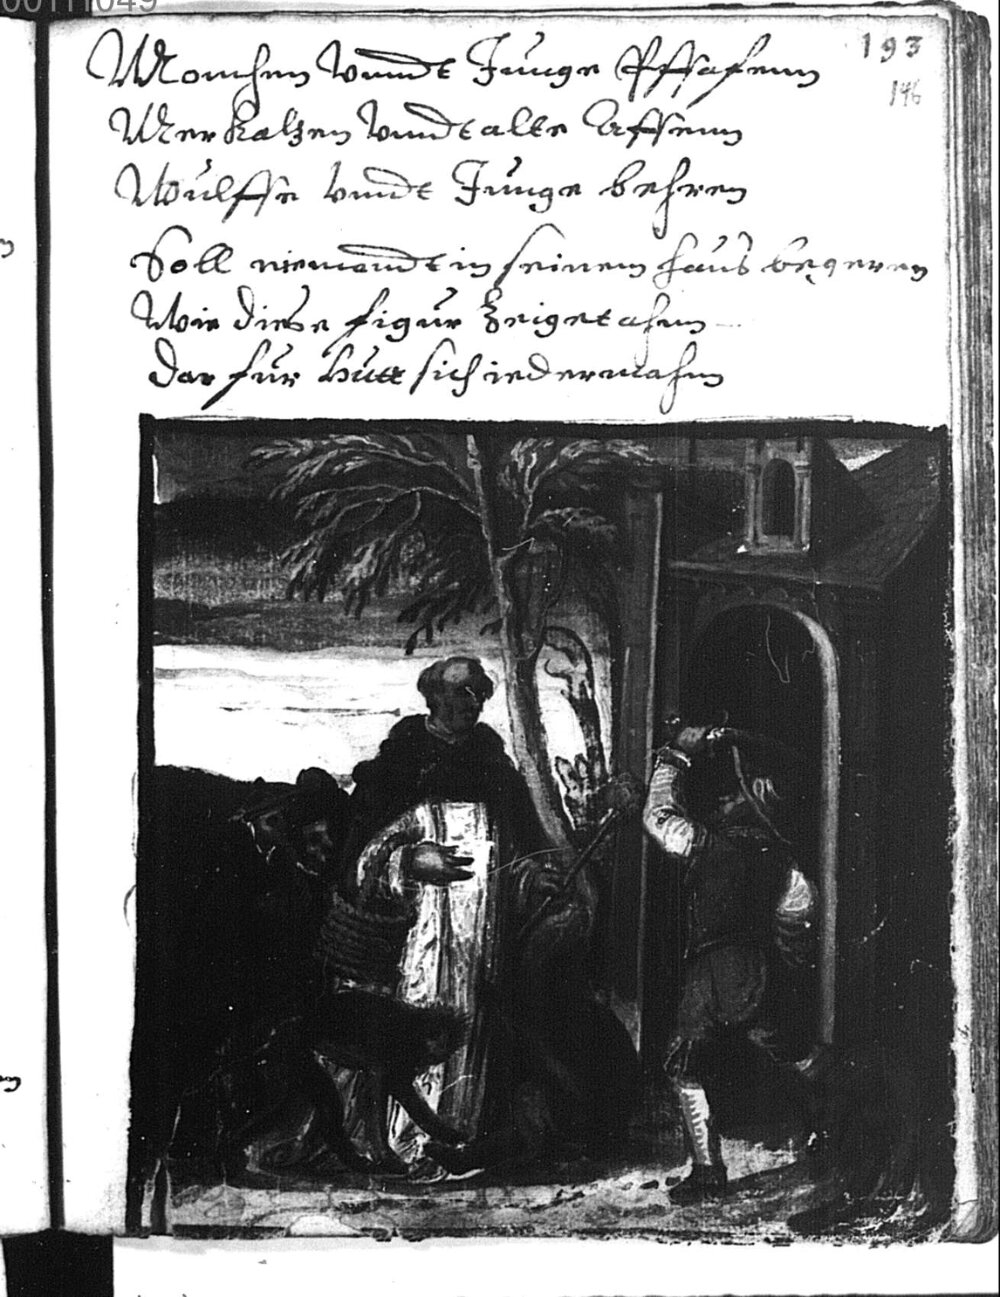 00111049
193
146
Monchen Vnndt Junge Pffafenn
Merkatzen Vnndt alte Affenn
Wůlffe Vnndt Junge behren
Soll niemandt in seinem haus begeren
Wie diese figur Zeiget ahnn
Dar fur hůtt sich iedermahn